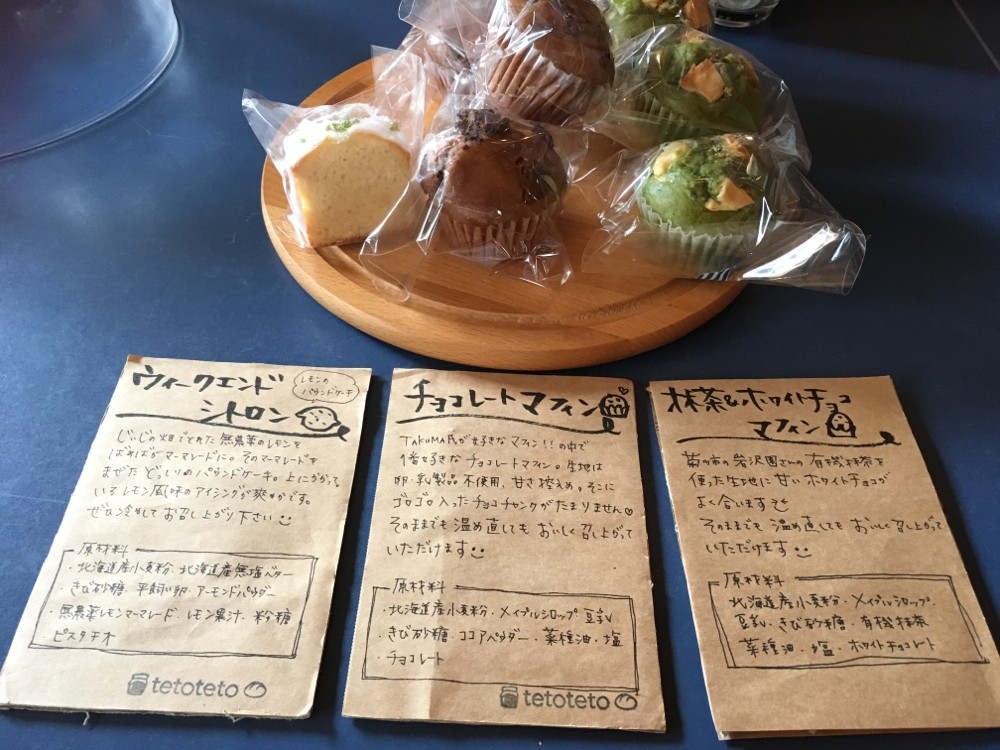 ウィークエンド
シトロン
レモンの
パウンドケーキ
じぃじの畑でとれた無農薬のレモンを
ばぁばがマーマレードに。そのマーマレードを
まぜたどっしりめのパウンドケーキ。上にかかって
いるレモン風味のアイシングが爽やかです。
ぜひ冷やしてお召し上がり下さい
原材料
・北海道産小麦粉・北海道産無塩バター
・きび砂糖・平飼い卵・アーモンドパウダー
・無農薬レモンマーマレード・レモン果汁・粉糖
・ピスタチオ
tetoteto
チョコレートマフィン
TAKUMA氏が好きなマフィン!!の中で
1番好きなチョコレートマフィン。生地は
卵・乳製品不使用、甘さ控えめ。そこに
ゴロゴロ入ったチョコチャンクがたまりません♡
そのままでも温め直してもおいしく召し上がって
いただけます
原材料
・北海道産小麦粉・メイプルシロップ 豆乳
・きび砂糖 ココアパウダー・菜種油・塩
・チョコレート
tetoteto
抹茶&ホワイトチョコ
マフィン
菊川市の岩沢園さんの有機抹茶を
使った生地に甘いホワイトチョコが
よく合います
そのままでも温め直してもおいしく召し上がって
いただけます
原材料
北海道産小麦粉・メイプルシロップ・
豆乳・きび砂糖・有機抹茶
菜種油・塩・ホワイトチョコレート